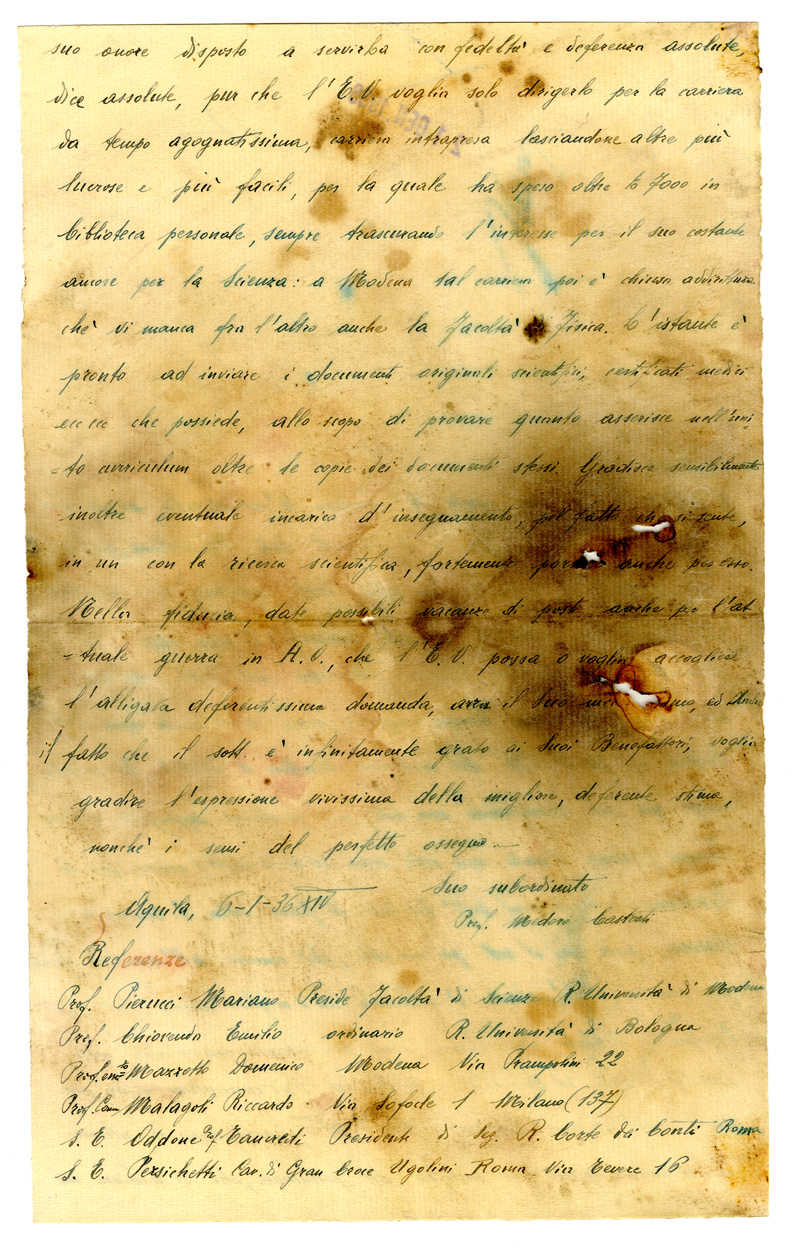 suo onore disposto a servirla con fedeltà e deferenza assolute,
dice assolute, pur che l'E.V. voglia solo dirigerlo per la carriera
da tempo agognatissima, carriera intrapresa lasciandone altre più
lucrose e più facili, per la quale ha speso oltre £ 7000 in
biblioteca personale, sempre trascurando l'interesse per il suo costante
amore per la Scienza: a Modena tal carriera poi è chiusa addirittura
chè vi manca fra l'altro anche la Facoltà di Fisica. L'istante è
pronto ad inviare i documenti originali scientifici, certificati medici
ecc ecc che possiede, allo scopo di provare quanto asserisce nell'uni
=to curriculum oltre le copie dei documenti stessi. Gradisce sensibilmente
inoltre eventuale incarico d'insegnamento, pel fatto che si sente,
in un con la ricerca scientifica, fortemente portato anche per esso.
Nella fiducia, date possibili vacanze di posti anche per l'at
=tuale guerra in A.O., che l'E.V. possa o voglia accogliere
l'alligata deferentissima domanda, il Suo ed
il fatto che il sott. è infinitamente grato ai Suoi Benefattori, voglia
gradire l'espressione vivissima della migliore, deferente stima,
nonchè i sensi del perfetto ossequio.
Suo subordinato
Aquila, 6-1-36 XIV
Prof. Medoro
Referenze
Prof. Pierucci Mariano Preside Facoltà di Scienze R. Università di Modena
Prof. Chiorendo Emilio ordinario R. Università di Bologna
Prof. Mazzotto Domenico Modena Via Prampolini 22
Prof. Malagoli Riccardo Via Sofocle 1 Milano (137)
S. E. Oddone Prof. Tancredi Presidente di Sez. R. Corte dei Conti Roma
S. E. Persichetti Cav. di Gran Croce Ugolini Roma Via Tevere 16